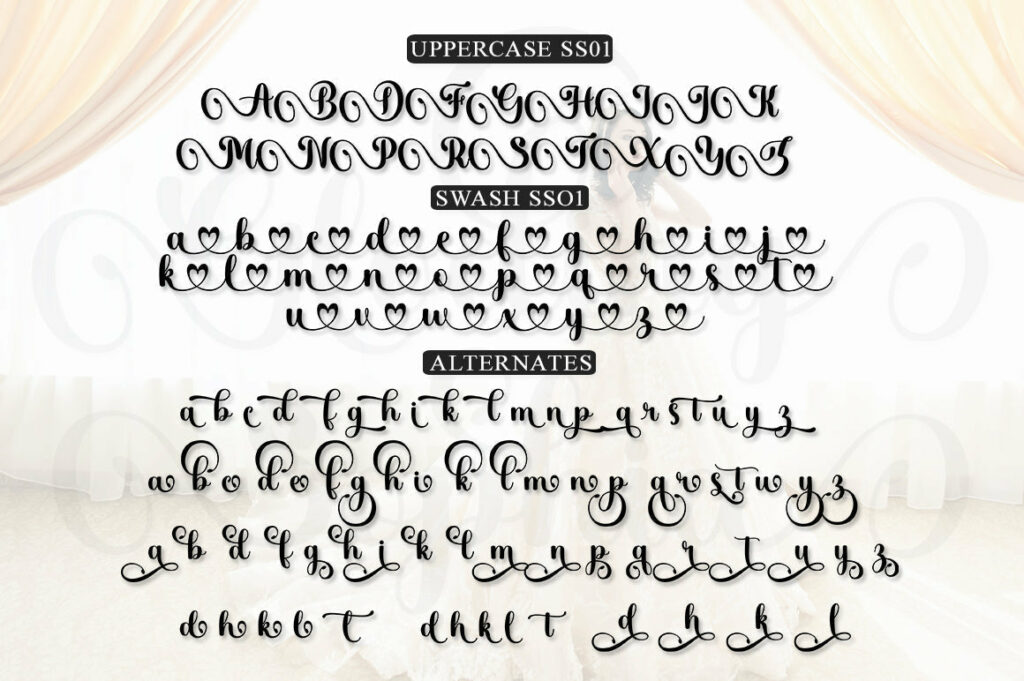 UPPERCASE SS01
A B D F G H I J K
M N P R S T X Y Z
SWASH SSO1
a b c d e f g h i j
k l m n o p q r s t
u v w x y z
ALTERNATES
a b c d f g h i k l m n p q r s t u y z
a b c d e f g h i k l m n p q r s t w y z
a b d f g h i k l m n p q r t u y z
d h k l t d h k l t d h k l